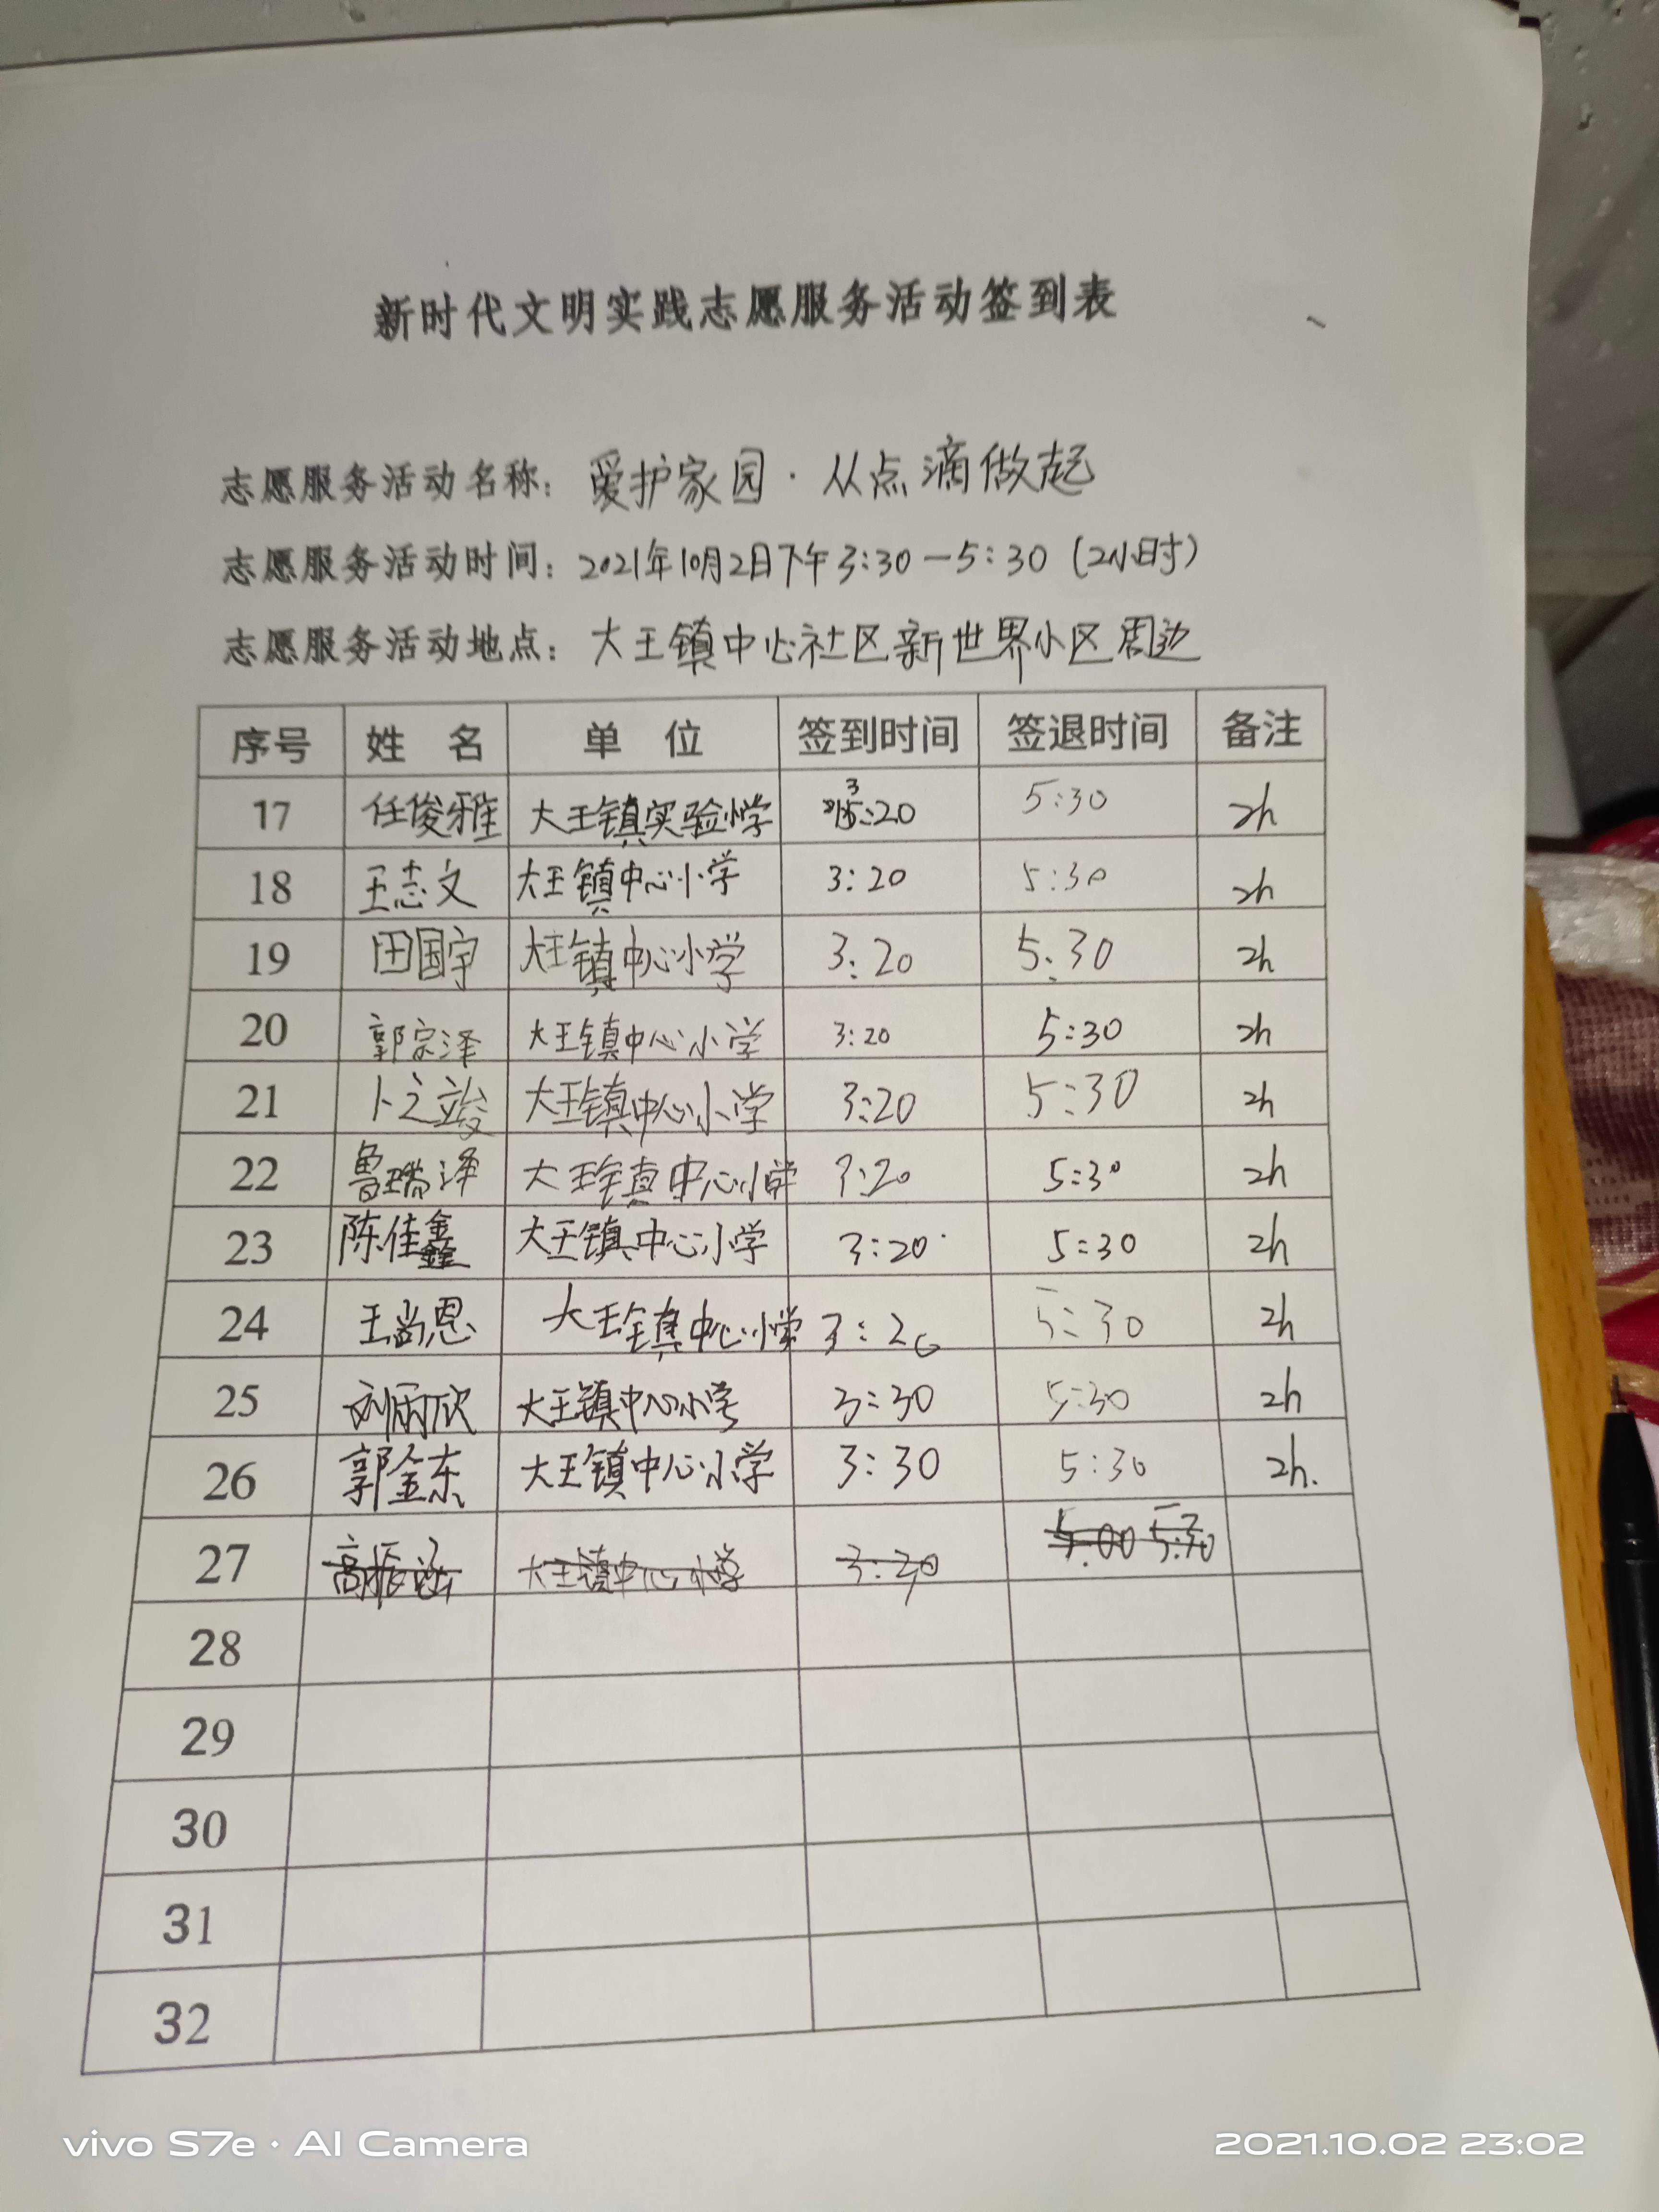 新时代文明实践志愿服务活动签到表
志愿服务活动名称：爱护家园·从点滴做起
志愿服务活动时间：2021年10月2日下午3:30—5:30（2小时）
志愿服务活动地点：大王镇中心社区新世界小区周边
序号 姓名 单位 签到时间 签退时间 备注
17 任俊雅 大王镇实验小学 3:20 5:30 2h
18 王志文 大王镇中心小学 3:20 5:30 2h
19 田国宇 大王镇中心小学 3:20 5:30 2h
20 郭宗泽 大王镇中心小学 3:20 5:30 2h
21 卜之竣 大王镇中心小学 3:20 5:30 2h
22 鲁瑞泽 大王镇中心小学 3:20 5:30 2h
23 陈佳鑫 大王镇中心小学 3:20 5:30 2h
24 王尚恩 大王镇中心小学 3:20 5:30 2h
25 刘雨欣 大王镇中心小学 3:30 5:30 2h
26 郭金东 大王镇中心小学 3:30 5:30 2h.
27 高振 大王镇中心小学 5:00 5:30
28
29
30
31
32
vivo S7e · AI Camera
2021.10.02 23:02